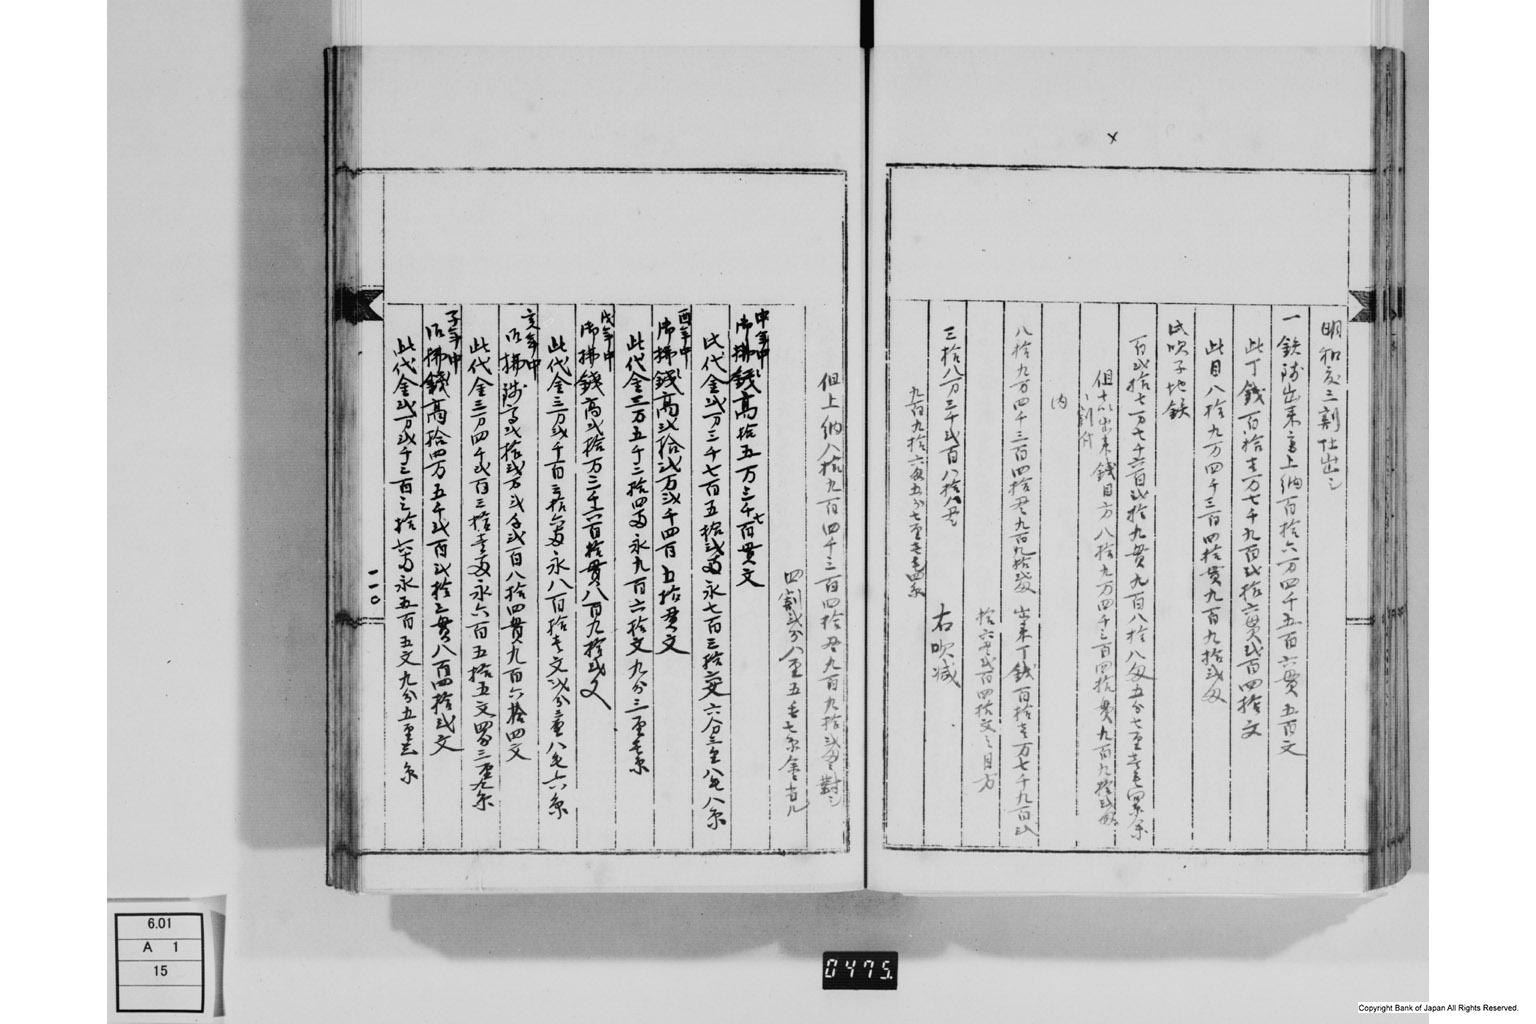 ×
明和度三割仕出シ
一鉄銭出来高上納百拾六万四千五百六貫五百文
此丁銭百拾壱万七千九百弐拾六貫弐百四拾文
此目八拾九万四千三百四拾貫九百九拾弐匁
此吹子地鉄
百弐拾七万七千六百弐拾九貫九百八拾八匁五分七厘壱毛四糸余
但十以出来銭目方八拾九万四千三百四拾貫九百九拾弐匁
割付
内
八拾九万四千三百四拾貫九百九拾弐匁 出来丁銭百拾壱万七千九百弐
拾六貫弐百四拾文之目方
三拾八万三千弐百八拾八貫
九百九拾六匁五分七厘壱毛四糸 右吹減
但上納八拾九百四千三百四拾貫九百九拾弐匁ニ対シ
四割弐分八厘五毛七糸余ニ当ル
申年中
御払銭高拾五万三千七百貫文
此代金弐万三千七百五拾弐両永七百三拾六文六分三厘八毛八糸
酉年中
御払銭高弐拾弐万弐千四百五拾貫文
此代金三万五千二拾四両永九百六拾文九分三厘壱糸
戌年中
御払銭高弐拾万三千六百拾貫八百九拾弐文
此代金三万弐千百三拾六両永八百拾壱文弐分三厘八毛六糸
亥年中
御払銭高弐拾弐万弐千弐百八拾四貫九百六拾四文
此代金三万四千弐百三拾壱両永六百五拾五文四分三厘九糸
子年中
御払銭高拾四万五千弐百弐拾三貫八百四拾弐文
此代金弐万弐千三百三拾六両永五百五文九分五厘三糸
一一〇
6.01
A 1
15
0475.
Copyright Bank of Japan All Rights Reserved.